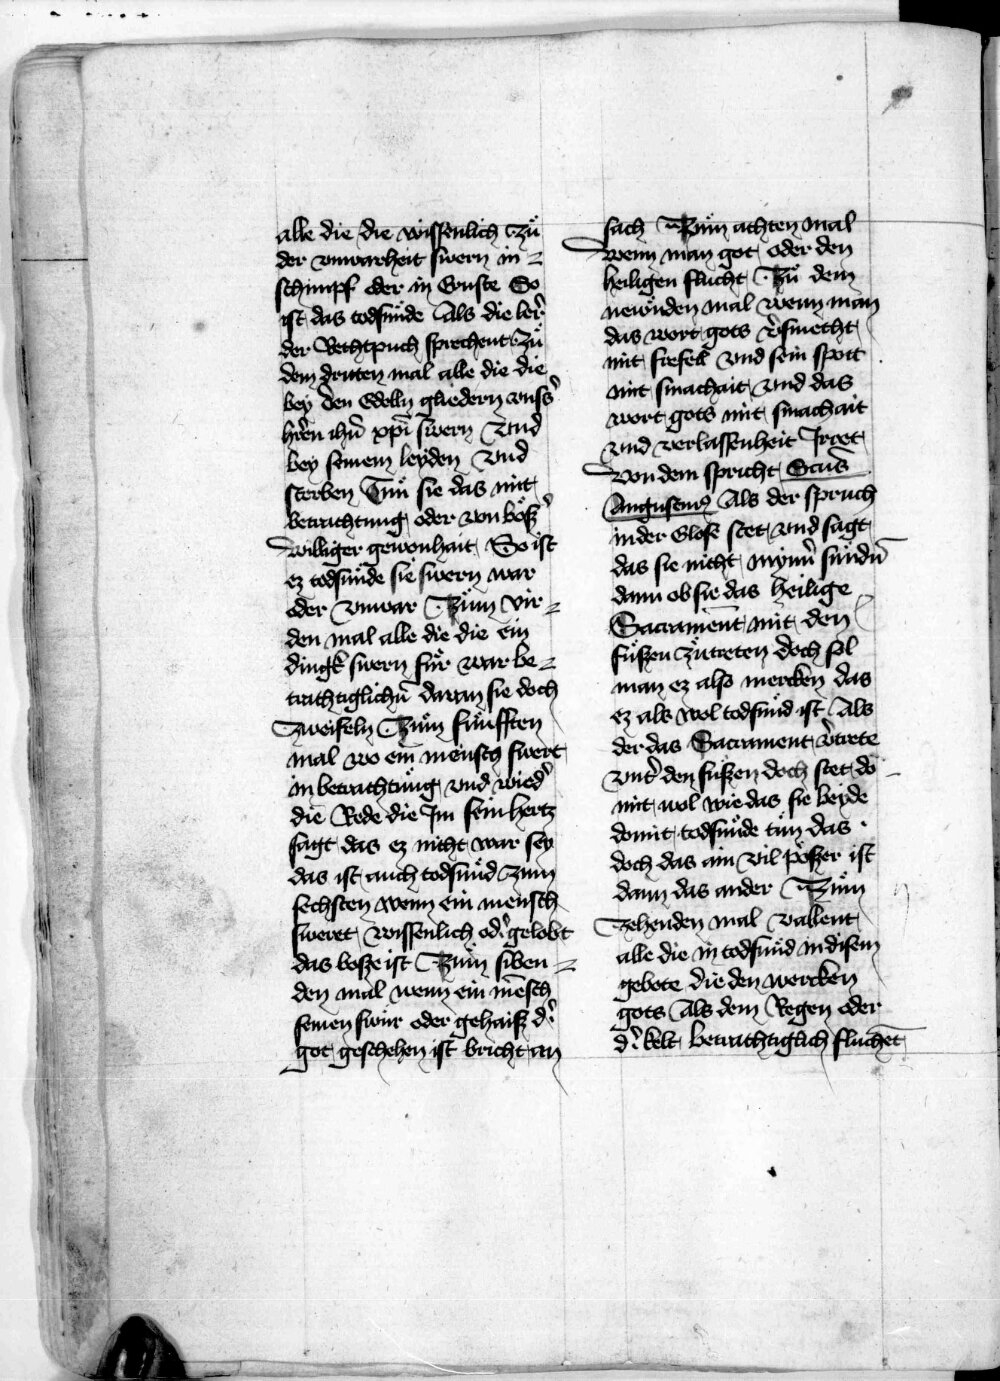 alle die die wissenlich zuͦ
der vnwarheit swern in=
schimpf oder in Ernste So
ist das todsuͤnde Als die ler̉
der Rechtpuch sprechent Zuͦ
dem dritten mal alle die die
bey den Edelln gliedern vnss̉
hr̉en ihũ xp̃i swern Vnd
bey seinem leyden Vnd
sterben Tuͤn sie das mit
betrachtung oder von boͤsz̉
williger gewonhait So ist
ez todsuͤnde sie swern war
oder vnwar Zuͦm vir=
den mal alle die die ein
dingk swern fuͤr war be=
trachtiglichñ daran sie doch
zweifeln Zuͦm fuͤnfften
mal wo ein mensch swert
in betrachtung vnd wied̉
die Rede die Im sein hertz
sagt das ez nicht war sey
das ist auch todsuͤnd Zum
sechsten wenn ein mensch
sweret wissenlich od̉ gelobt
das bosze ist Zuͦm siben=
den mal wenn ein mẽsch
seinen swuͤr oder gehaisz d̉
got geschehen ist bricht an
sach Zuͦm achten mal
wenn man got oder den
heiligen flucht Zuͦ dem
newnden mal wenn man
das wort gots v̉smecht
mit frefell vnd sein spott
mit smachait vnd das
wort gots mit smachait
vnd verlassenheit Irret
von dem spricht Sc̃us
Augustinꝯ Als der spruch
in der Glose stet vnd sagt
das sie nicht myn̉ suͤndñ
dann ob sie das heilige
Sacrament mit den
fuͤszen zuͦtreten doch sol
man ez also mercken das
ez als wol todsuͤnd ist Als
der das Sacrament v̉trete
vnt̉ den fuͤszen doch stet do
mit wol wie das sie beyde
domit todsuͤnde tuͤn das
doch das ain vil poͤszer ist
dann das ander Zuͦm
zehenden mal vallent
alle die in todsuͤnd in disem
gebote die den wercken
gots Als dem Regen oder
d̉ kelt betrachtiglich fluchẽt